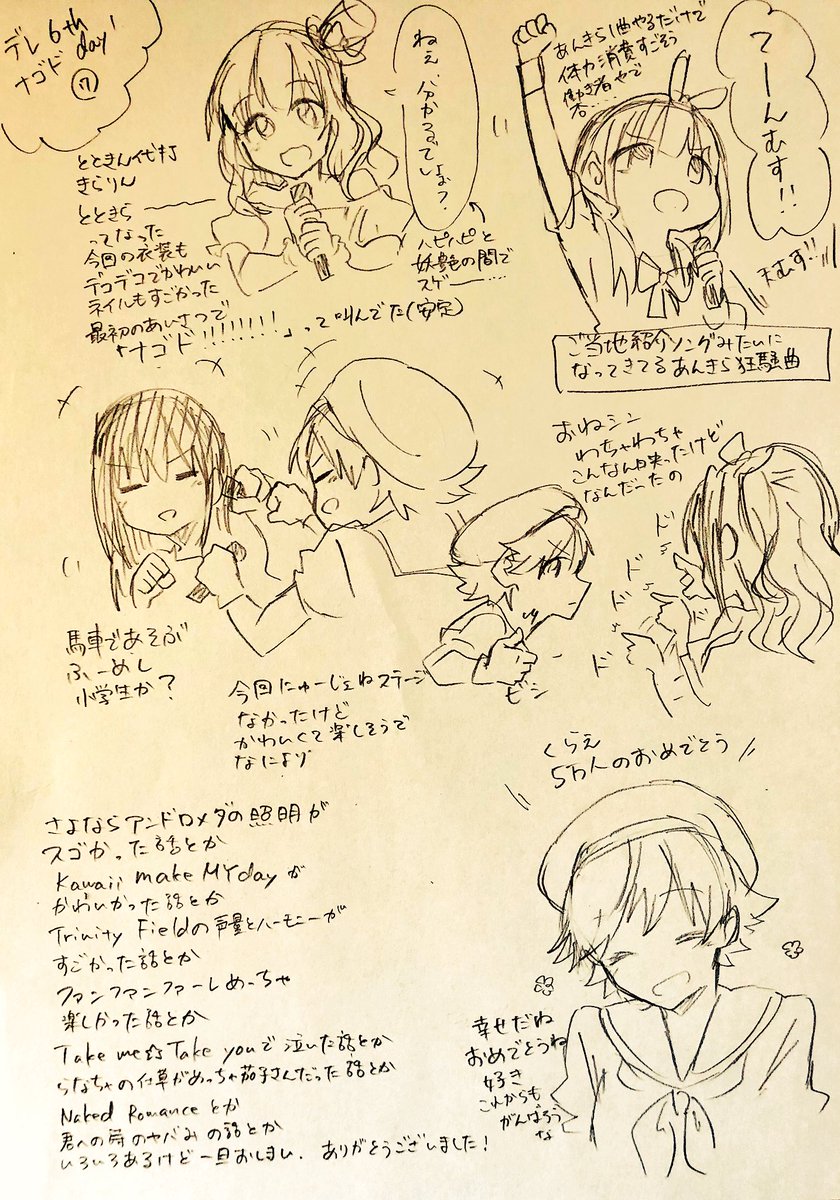 デレ6th
ナゴド day1
⑦
てーんむす!!
天むす!!
あんきら1曲やるだけで
体力消費すごそう
働き者やで
杏……
ご当地紹介ソングみたいに
なってきてるあんきら狂騒曲
ねぇ、分かるでしょ?
ハピハピと
妖艶の間で
スゲー……
とときん代打
きらりん
とときら ———
ってなった
今回の衣装も
デコデコでかわいい
ネイルもすごかった
最初のあいさつで
「ナゴド!!!!!!!!」って叫んでた(安定)
おねシン
わちゃわちゃ
こんなん日映ったけど
なんだったの
ド
ド
ド
ド
ビシ
馬車であそぶ
ふーめし
小学生か?
今回にゅーじぇねステージ
なかったけど
かわいくて楽しそうで
なにより
くらえ
5万人のおめでとう
幸せだね
おめでとうね
好き
これからも
がんばろう
な
さよならアンドロメダの照明が
スゴかった話とか
Kawaii make MY dayが
かわいかった話とか
Trinity Fieldの声量とハーモニーが
すごかった話とか
ファンファンファーレめっちゃ
楽しかった話とか
Take me☆Take youで泣いた話とか
らなちゃの仕草がめっちゃ茄子さんだった話とか
Naked Romanceとか
君への詩のヤバみの話とか
いろいろあるけど一旦おしまい、ありがとうございました!